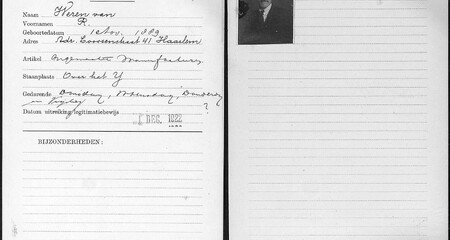 Naam Weren van
Voornamen R.
Geboortedatum 1 Nov. 1889
Adres Adr. Loosjesstraat 41 Haarlem
Artikel Ongemaakte Manufacturen
Staanplaats Over het Y
Gedurende Dinsdag, Woensdag, Donderdag
en Vrijdag ?
Datum uitreiking legitimatiebewijs DEC. 1922
BIJZONDERHEDEN: